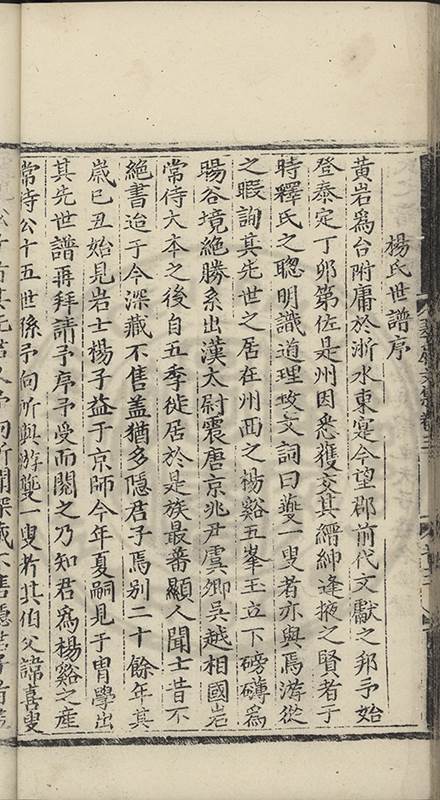 楊氏世譜序
黃岩爲台附庸於浙水東寔今望郡前代文獻之邦予始
登泰定丁卯第佐是州因悉獲交其縉紳逢掖之賢者于
時釋氏之聰明識道理攻文詞曰夔一叟者亦與焉游從
之暇詢其先世之居在州西之楊谿五峯玉立下磅礴爲
暘谷境絶勝系出漢太尉震唐京兆尹虞卿吴越相國岩
常侍大本之後自五季徙居於是族最蕃顯人聞士昔不
絶書迨于今深藏不售盖猶多隱君子焉别二十餘年其
歳已丑始見岩士楊子益于京師今年夏嗣見于胄學出
其先世譜再拜請予序予受而閲之乃知君爲楊谿之産
常侍公十五世孫予向所與游夔一叟者其伯父諱喜叟